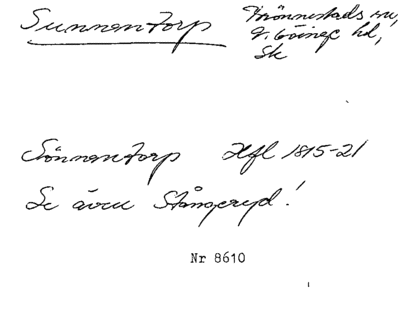 Sunnentorp
Brönnestads sn,
V. Göinge hd,
Sk
Sönnentorp Hfl 1815-21
Se även Stångeryd!
Nr 8610